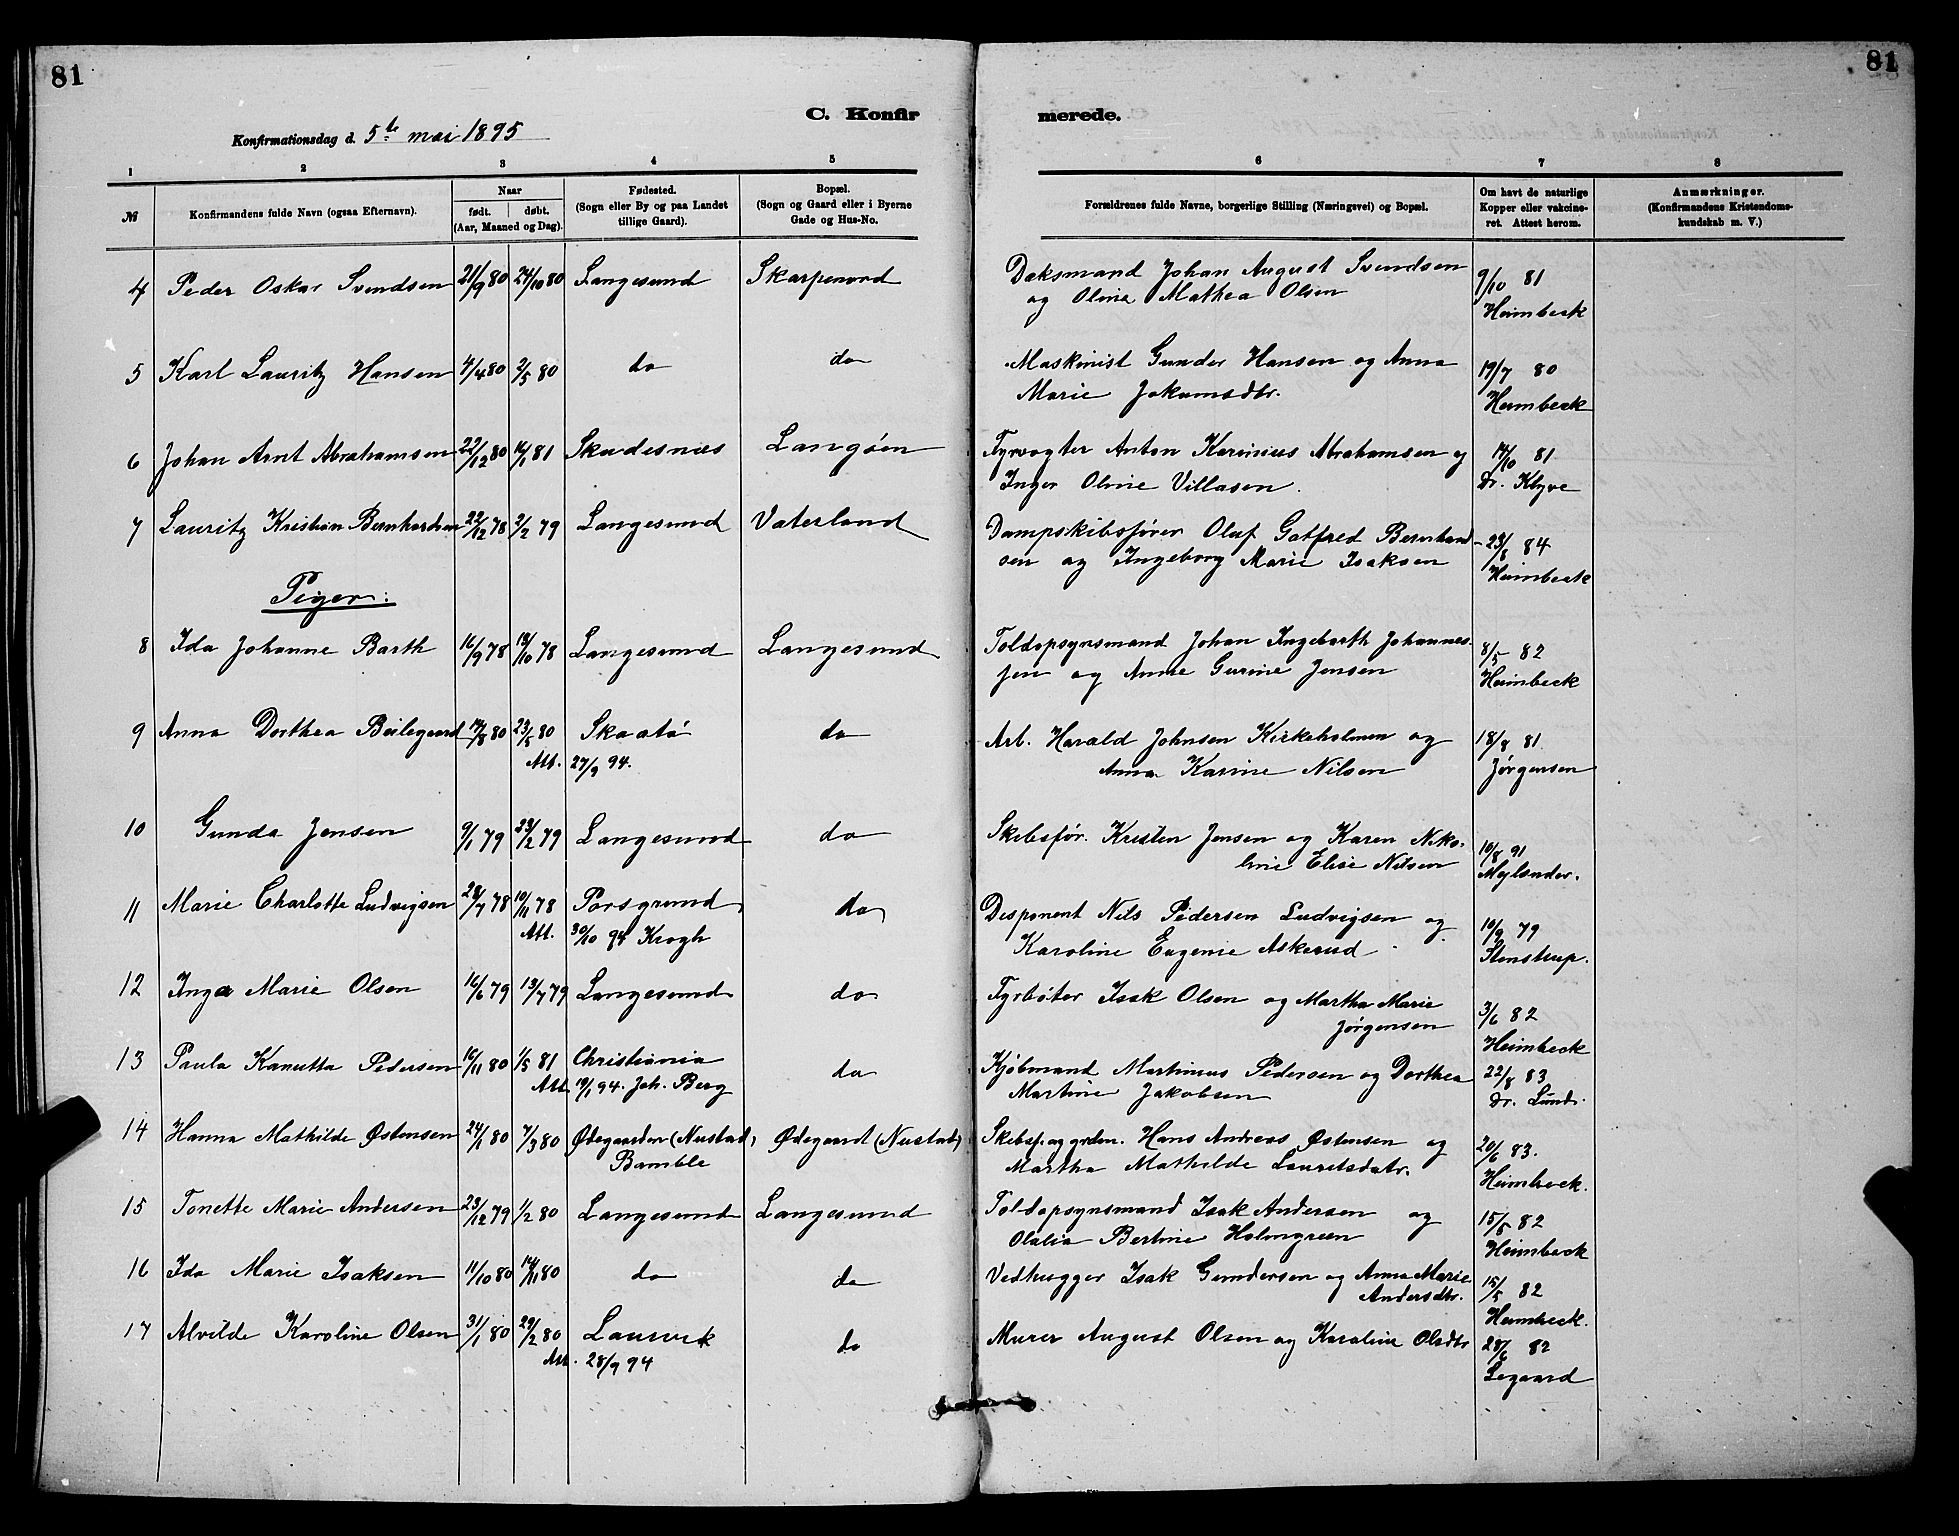 81
81
C. Konfir
merede.
Konfirmationsdag d. 5te mai 1895
1 2 3 4 5 6 7 8
№
Konfirmandens fulde Navn (ogsaa Efternavn).
Naar
født. døbt.
(Aar, Maaned og Dag).
Fødested.
(Sogn eller By og paa Landet
tillige Gaard).
Bopæl.
(Sogn og Gaard eller i Byerne
Gade og Hus-No.
Forældrenes fulde Navne, borgerlige Stilling (Næringsvei) og Bopæl.
Om havt de naturlige
Kopper eller vakcine-
ret. Attest herom.
Anmærkninger.
(Konfirmandens Kristendoms-
kundskab m. V.)
4 Peder Oskar Svendsen 21/9 80 24/10 80 Langesund Skarpenord Dæksmand Johan August Svendsen 9/10 81
og Oline Mathea Olsen Heimbeck
5 Karl Lauritz Hansen 4/4 80 2/5 80 do do Maskinist Gunder Hansen og Anna 19/7 80
Marie Jokumsdtr. Heimbeck
6 Johan Arnt Abrahamsen 22/12 80 16/1 81 Skudesnæs Langøen Fyrvogter Anton Karinius Abrahamsen og 14/10 81
Inger Oline Villasen. Dr. Klyve
7 Lauritz Kristian Bernhardsen 22/12 78 2/2 79 Langesund Vaterland Dampskibsfører Oluf Gotfred Bernhard- 23/8 84
sen og Ingeborg Marie Isaksen Heimbeck
Piger:
8 Ida Johanne Barth 16/9 78 13/10 78 Langesund Langesund Toldopsynsmand Johan Ingebarth Johannes 8/5 82
sen og Anne Gurine Jensen Heimbeck
9 Anna Dorthea Beilegaard 80 23/5 80 Skaatø do Arb. Harald Johnsen Kirkeholmen og 18/8 81
Att. 27/9 94. Anna Karine Nilsen Jørgensen
10 Gunda Jensen 9/1 79 23/2 79 Langesund do Skibsfør. Kristen Jensen og Karen Niko-
line Elise Nilsen 10/8 91
Mylander.
11 Marie Charlotte Ludvigsen 28/7 78 10/11 78 Porsgrund do Disponent Nils Pedersen Ludvigsen og 10/9 79
Att. 30/10 94 Krogh Karoline Eugenie Askerud Stenstrup.
12 Inga Marie Olsen 16/6 79 13/7 79 Langesund do Fyrbøter Isak Olsen og Martha Marie 3/6 82
Jørgensen Heimbeck
13 Paula Kanutta Pedersen 16/11 80 1/5 81 Christiania do Kjøbmand Martinius Pedersen og Dorthea 22/8 83
Att. 94. Joh. Berg Martine Jakobsen Dr. Lund.
14 Hanna Mathilde Østensen 24/1 80 7/3 80 Ødegaarden (Nustad) Ødegaard (Nustad) Skibsp. og grden. Hans Andreas Østensen og 20/6 83.
Bamble Martha Mathilde Lauritsdatr. Heimbeck.
15 Tonette Marie Andersen 23/12 79 1/2 80 Langesund Langesund Toldopsynsmand Isak Andersen og 15/5 82
Olalia Bertine Holmgreen Heimbeck
16 Ida Marie Isaksen 11/10 80 14/11 80 do do Vedhugger Isak Gundersen og Anna Marie 15/5 82
Andersdtr. Heimbeck.
17 Alvilde Karoline Olsen 31/1 80 29/2 80 Laurvik do Murer August Olsen og Karoline Olsdtr 28/6 82
Att. 28/9 94 Segaard